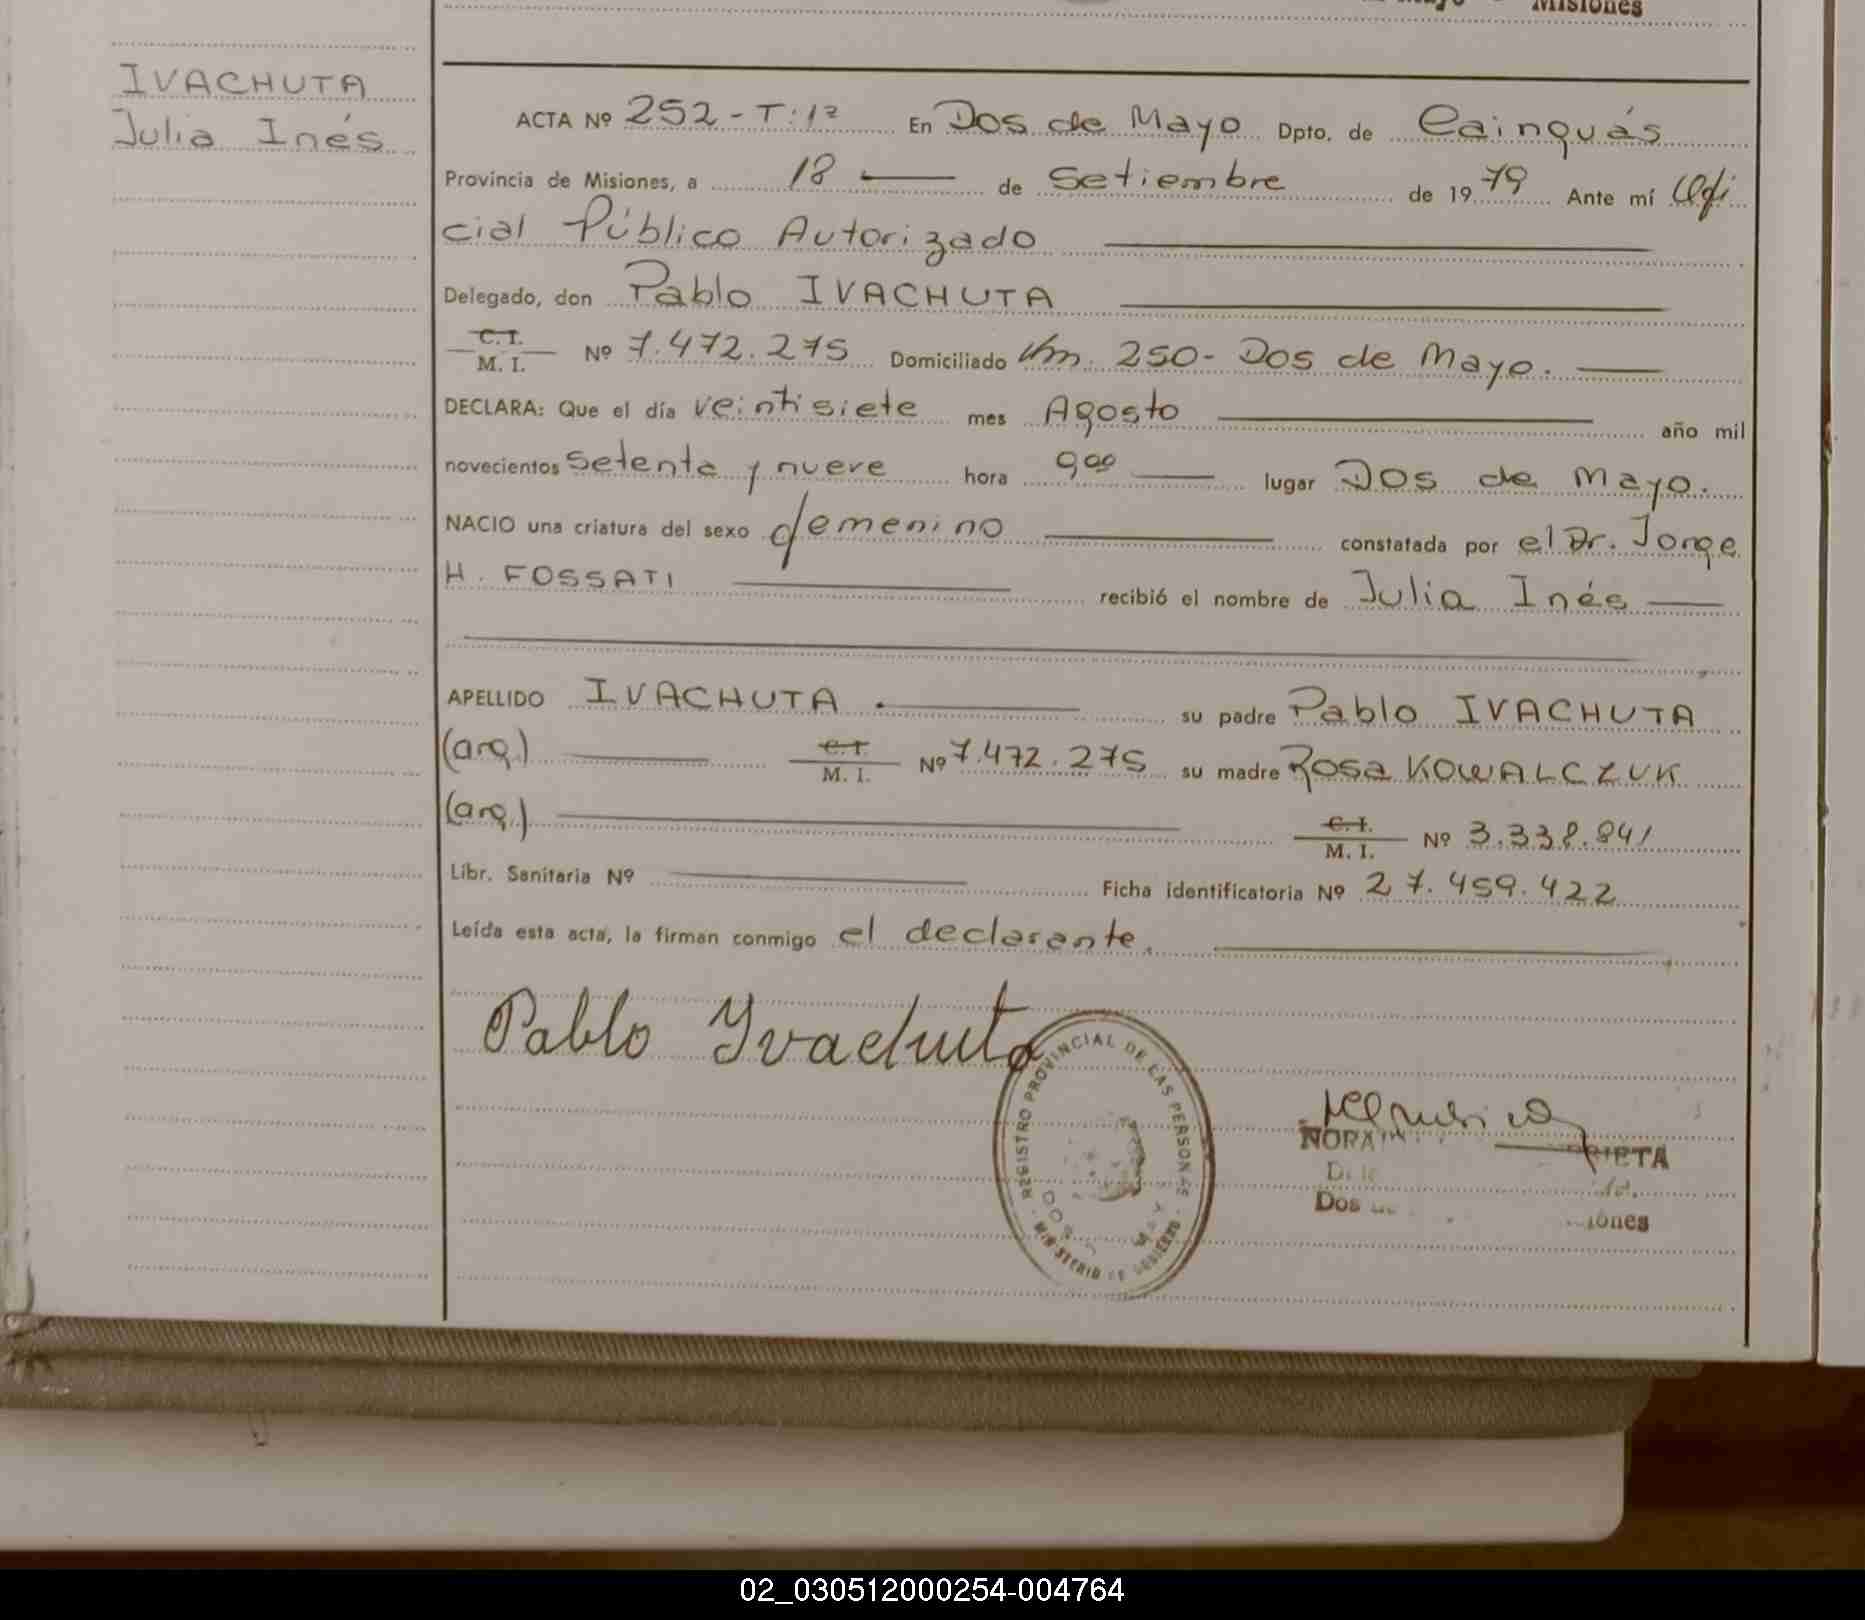 Misiones
IVACHUTA
Julia Inés
ACTA Nº 252 - T: 1º En Dos de Mayo Dpto. de Cainguás
Provincia de Misiones, a 18 — de Setiembre de 1979 Ante mí Ofi
cial Público Autorizado
Delegado, don Pablo IVACHUTA
C. I.
M. I. Nº 7.472.275 Domiciliado Km. 250 - Dos de Mayo.
DECLARA: Que el día veintisiete mes Agosto año mil
novecientos setenta y nueve hora 9 00 lugar Dos de Mayo.
NACIO una criatura del sexo femenino constatada por el Dr. Jorge
H. FOSSATI recibió el nombre de Julia Inés
APELLIDO IVACHUTA. su padre Pablo IVACHUTA
(arg.) C. I. M. I. Nº 7.472.275 su madre Rosa KOWALCZUK
(arg.) C. I. M. I. Nº 3.338.841
Libr. Sanitaria Nº Ficha identificatoria Nº 27.459.422
Leída esta acta, la firman conmigo el declarante.
Pablo Yvachuta
REGISTRO PROVINCIAL DE LAS PERSONAS
MINISTERIO DE GOBIERNO
NORA
Dos
02_030512000254-004764